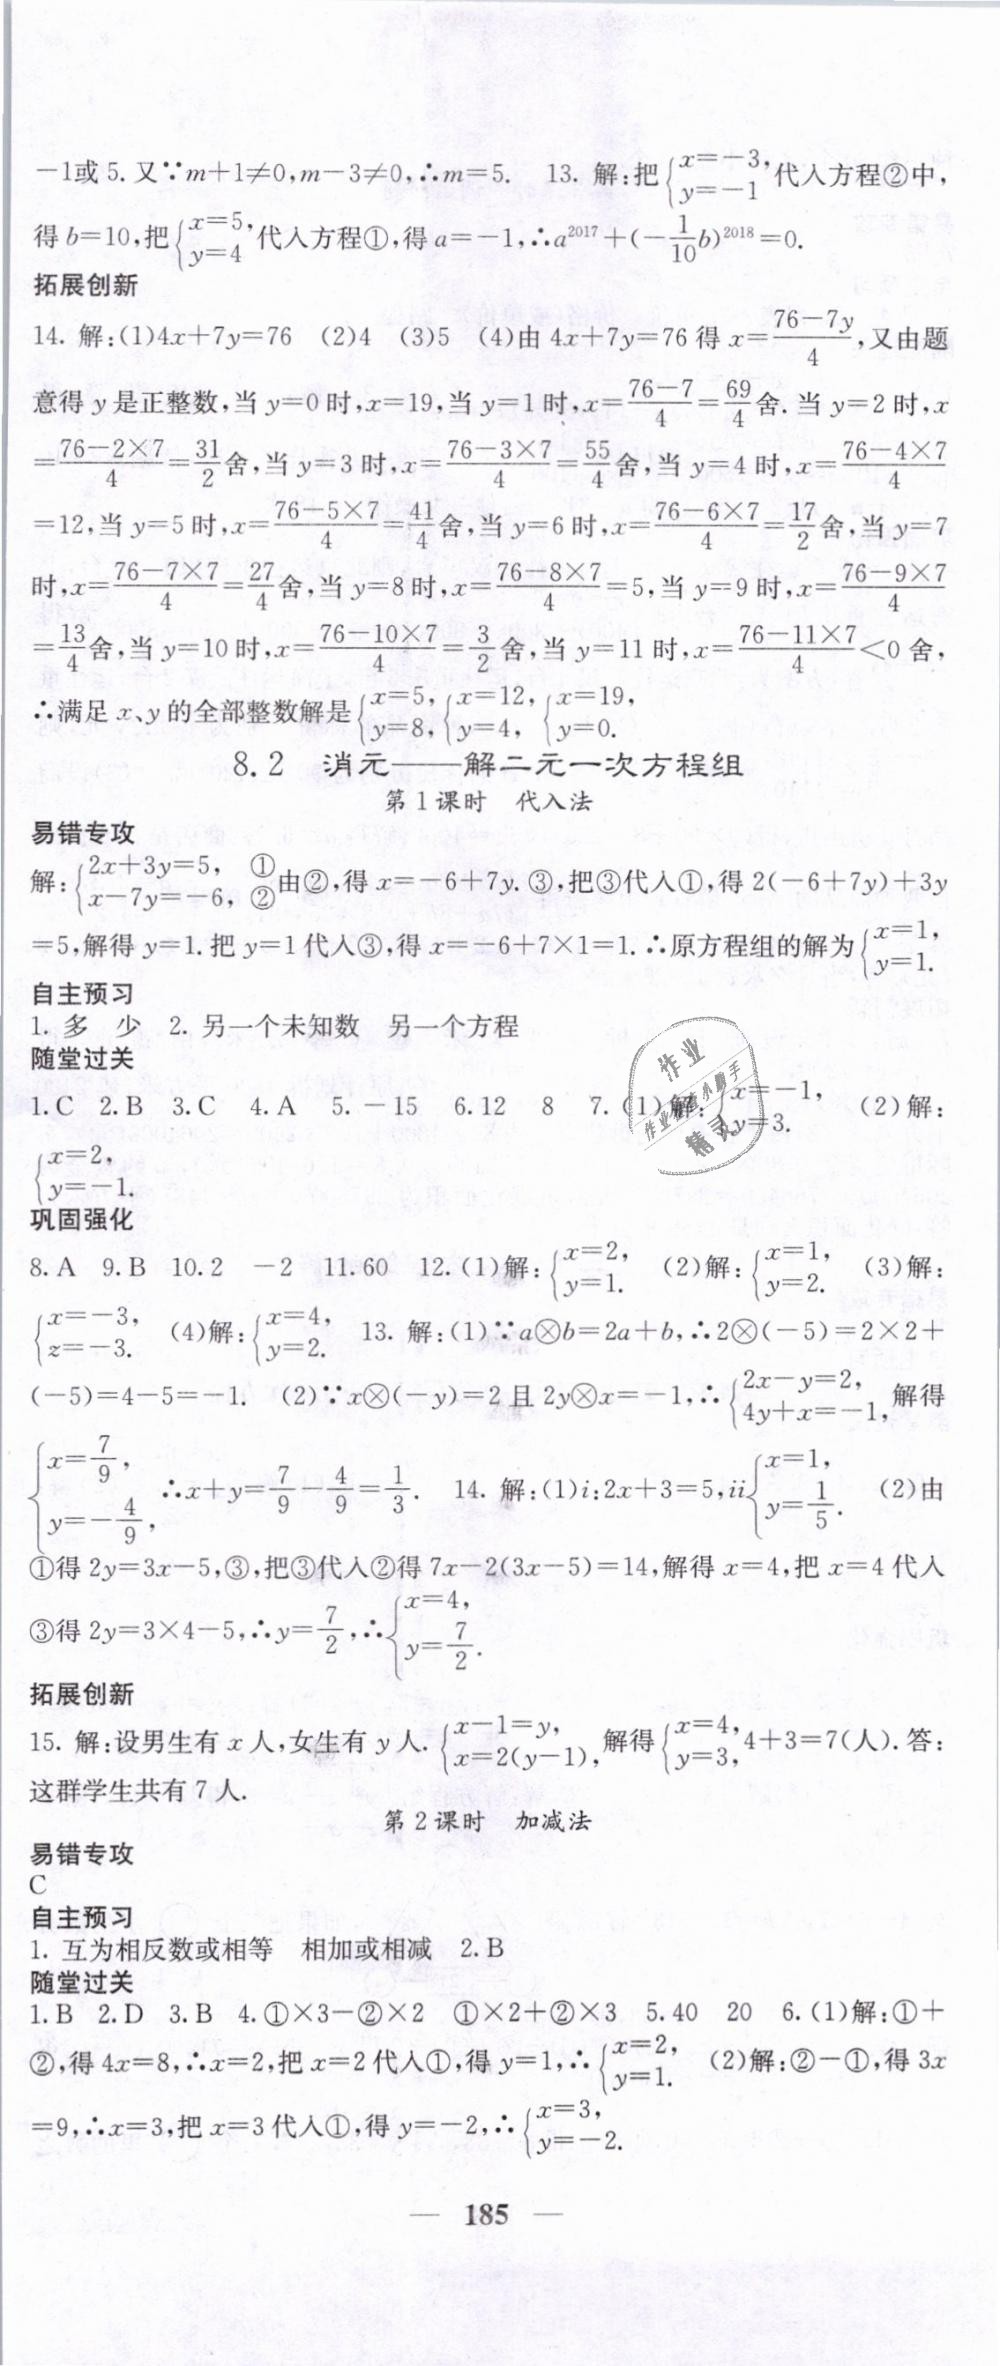 -1或 5. 又∵m+1≠0,m-3≠0,∴m=5. 13. 解:把{x=-3, y=-1 代入方程②中,
得 b=10,把{x=5, y=4 代入方程①,得 a=-1,∴a²⁰¹⁷+(-1/10 b)²⁰¹⁸=0.
拓展创新
14. 解:(1)4x+7y=76 (2)4 (3)5 (4)由 4x+7y=76 得 x=(76-7y)/4,又由题
意得 y 是正整数,当 y=0 时,x=19,当 y=1 时,x=(76-7)/4=69/4舍. 当 y=2 时,x
=(76-2×7)/4=31/2舍,当 y=3 时,x=(76-3×7)/4=55/4舍,当 y=4 时,x=(76-4×7)/4
=12,当 y=5 时,x=(76-5×7)/4=41/4舍,当 y=6 时,x=(76-6×7)/4=17/2舍,当 y=7
时,x=(76-7×7)/4=27/4舍,当 y=8 时,x=(76-8×7)/4=5,当 y=9 时,x=(76-9×7)/4
=13/4舍,当 y=10 时,x=(76-10×7)/4=3/2舍,当 y=11 时,x=(76-11×7)/4<0 舍,
∴满足 x、y 的全部整数解是{x=5, y=8, {x=12, y=4, {x=19, y=0.
8.2 消元——解二元一次方程组
第 1 课时 代入法
易错专攻
解:{2x+3y=5, ① x-7y=-6, ②由②,得 x=-6+7y. ③,把③代入①,得 2(-6+7y)+3y
=5,解得 y=1. 把 y=1 代入③,得 x=-6+7×1=1. ∴原方程组的解为{x=1, y=1.
自主预习
1. 多 少 2. 另一个未知数 另一个方程
随堂过关
1.C 2.B 3.C 4.A 5.-15 6.12 8 7.(1)解:{x=-1, y=3. (2)解:
{x=2, y=-1.
巩固强化
8.A 9.B 10.2 -2 11.60 12.(1)解:{x=2, y=1. (2)解:{x=1, y=2. (3)解:
{x=-3, z=-3. (4)解:{x=4, y=2. 13. 解:(1)∵a⊗b=2a+b,∴2⊗(-5)=2×2+
(-5)=4-5=-1. (2)∵x⊗(-y)=2 且 2y⊗x=-1,∴{2x-y=2, 4y+x=-1,解得
{x=7/9, y=-4/9, ∴x+y=7/9-4/9=1/3. 14. 解:(1)i:2x+3=5,ii{x=1, y=1/5. (2)由
①得 2y=3x-5,③,把③代入②得 7x-2(3x-5)=14,解得 x=4,把 x=4 代入
③得 2y=3×4-5,∴y=7/2,∴{x=4, y=7/2.
拓展创新
15. 解:设男生有 x 人,女生有 y 人. {x-1=y, x=2(y-1),解得{x=4, y=3, 4+3=7(人). 答:
这群学生共有 7 人.
第 2 课时 加减法
易错专攻
C
自主预习
1. 互为相反数或相等 相加或相减 2.B
随堂过关
1.B 2.D 3.B 4.①×3-②×2 ①×2+②×3 5.40 20 6.(1)解:①+
②,得 4x=8,∴x=2,把 x=2 代入①,得 y=1,∴{x=2, y=1. (2)解:②-①,得 3x
=9,∴x=3,把 x=3 代入①,得 y=-2,∴{x=3, y=-2.
— 185 —
作业
精灵